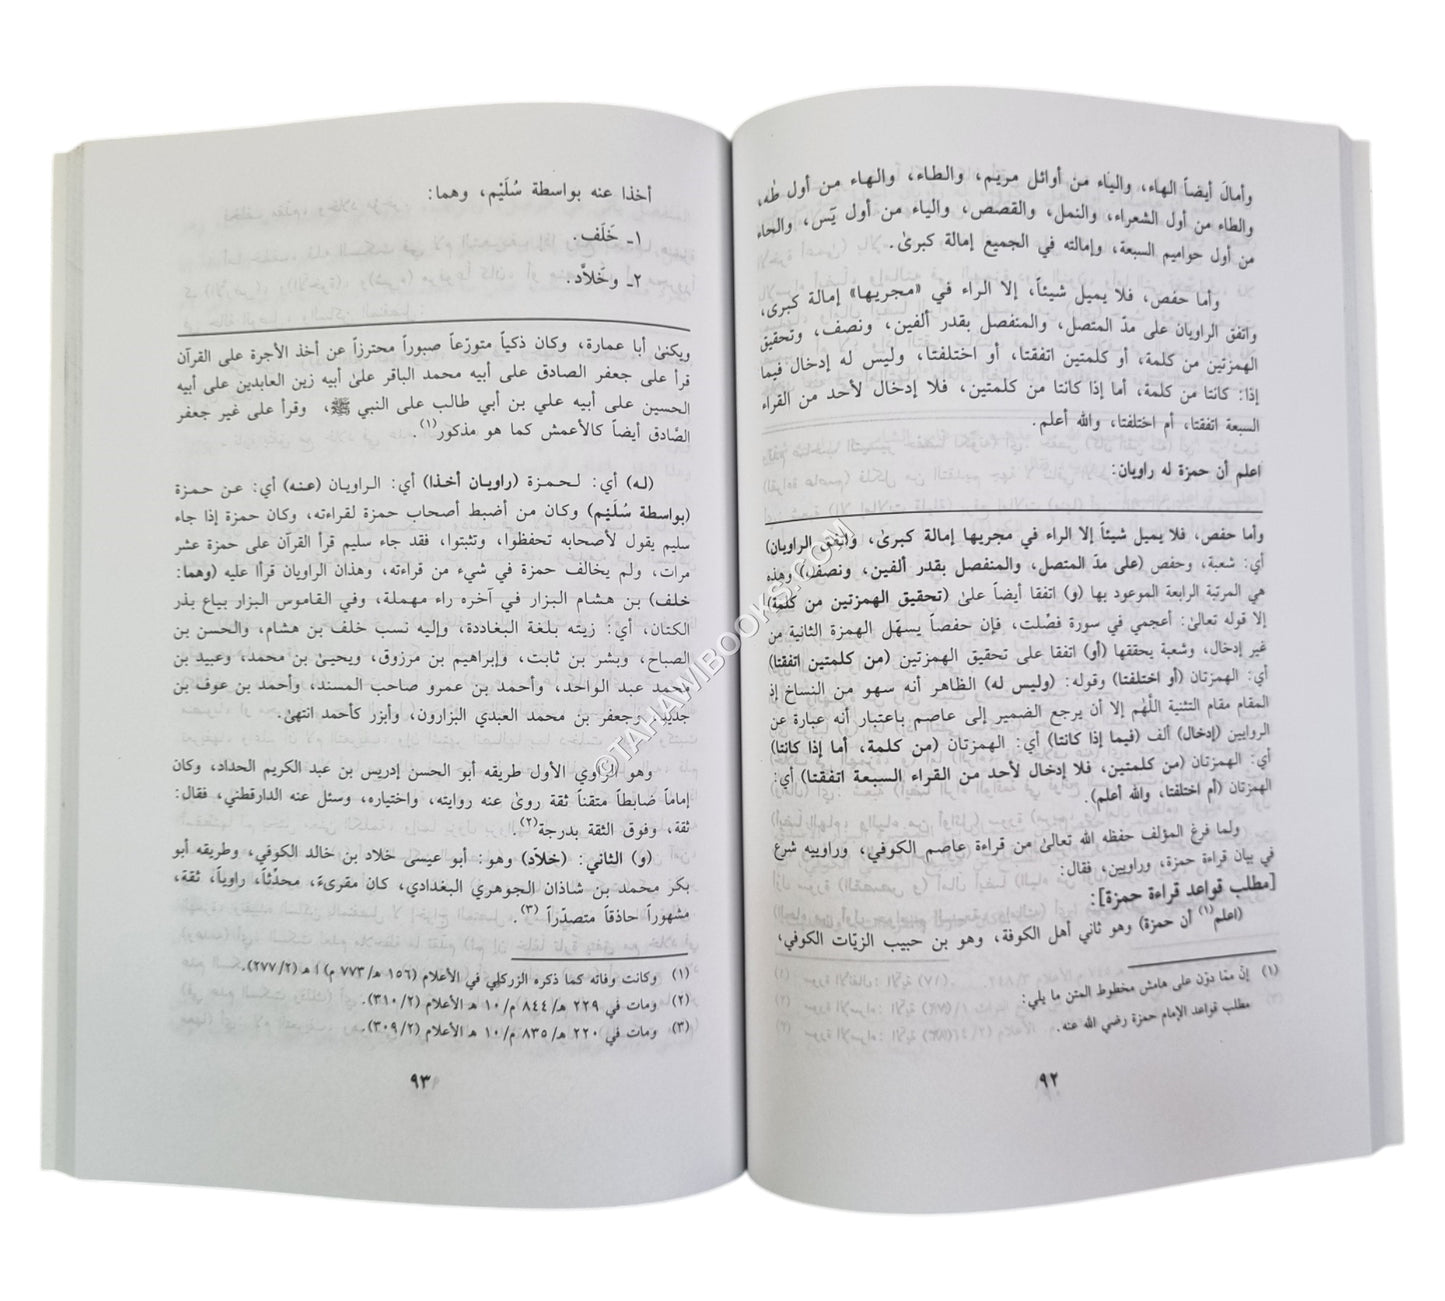 وأمالَ أيضاً الهاء، والياء من أوائل مريم، والطاء، والهاء من أول طٰه،
والطاء من أول الشعراء، والنمل، والقصص، والياء من أول يٓس، والحاء
من أول حواميم السبعة، وإمالته في الجميع إمالة كبرىٰ.
وأما حفص، فلا يميل شيئاً، إلا الراء في «مجريها» إمالة كبرى،
واتفق الراويان على مدّ المتصل، والمنفصل بقدر ألفين، ونصف، وتحقيق
الهمزتين من كلمة، أو كلمتين اتفقتا، أو اختلفتا، وليس له إدخال فيما
إذا: كانتا من كلمة، أما إذا كانتا من كلمتين، فلا إدخال لأحد من القراء
السبعة اتفقتا، أم اختلفتا، والله أعلم.
اعلم أن حمزة له راويان:
وأما حفص، فلا يميل شيئاً إلا الراء في مجريها إمالة كبرىٰ، واتفق الراويان)
أي: شعبة، وحفص (على مدّ المتصل، والمنفصل بقدر ألفين، ونصف،) وهذه
هي المرتبة الرابعة الموعود بها (و) اتفقا أيضاً علىٰ (تحقيق الهمزتين من كلمة)
إلا قوله تعالىٰ: أعجمي في سورة فصّلت، فإن حفصاً يسهّل الهمزة الثانية من
غير إدخال، وشعبة يحققها (أو) اتفقا على تحقيق الهمزتين (من كلمتين اتفقتا)
أي: الهمزتان (أو اختلفتا) وقوله: (وليس له) الظاهر أنه سهو من النساخ إذ
المقام مقام التثنية اللّٰهم إلا أن يرجع الضمير إلى عاصم باعتبار أنه عبارة عن
الروايين (إدخال) ألف (فيما إذا كانتا) أي: الهمزتان (من كلمة، أما إذا كانتا)
أي: الهمزتان (من كلمتين، فلا إدخال لأحد من القراء السبعة اتفقتا) أي:
الهمزتان (أم اختلفتا، والله أعلم).
ولما فرغ المؤلف حفظه الله تعالىٰ من قراءة عاصم الكوفي، وراوييه شرع
في بيان قراءة حمزة، وراويين، فقال:
[مطلب قواعد قراءة حمزة]:
(اعلم(١) أن حمزة) وهو ثاني أهل الكوفة، وهو بن حبيب الزيّات الكوفي،
(١) إنّ ممّا دوّن على هامش مخطوط المتن ما يلي:
مطلب قواعد الإمام حمزة رضي الله عنه.
٩٢
أخذا عنه بواسطة سُلَيْم، وهما:
١ـ خَلَف.
٢ـ وخَلاَّد.
ويكنىٰ أبا عمارة، وكان ذكياً متورّعاً صبوراً محترزاً عن أخذ الأجرة على القرآن
قرأ على جعفر الصادق على أبيه محمد الباقر علىٰ أبيه زين العابدين على أبيه
الحسين على أبيه علي بن أبي طالب على النبي ﷺ، وقرأ على غير جعفر
الصّادق أيضاً كالأعمش كما هو مذكور(١).
(له) أي: لحمزة (راويان أخذا) أي: الراويان (عنه) أي: عن حمزة
(بواسطة سُلَيْم) وكان من أضبط أصحاب حمزة لقراءته، وكان حمزة إذا جاء
سليم يقول لأصحابه تحفظوا، وتثبتوا، فقد جاء سليم قرأ القرآن على حمزة عشر
مرات، ولم يخالف حمزة في شيء من قراءته، وهذان الراويان قرأا عليه (وهما:
خلف) بن هشام البزار في آخره راء مهملة، وفي القاموس البزار بياع بذر
الكتان، أي: زيته بلغة البغاددة، وإليه نسب خلف بن هشام، والحسن بن
الصباح، وبشر بن ثابت، وإبراهيم بن مرزوق، ويحيىٰ بن محمد، وعبيد بن
محمد عبد الواحد، وأحمد بن عمرو صاحب المسند، وأحمد بن عوف بن
جدير، وجعفر بن محمد العبدي البزارون، وأبزر كأحمد انتهىٰ.
وهو الراوي الأول طريقه أبو الحسن إدريس بن عبد الكريم الحداد، وكان
إماماً ضابطاً متقناً ثقة روىٰ عنه روايته، واختياره، وسئل عنه الدارقطني، فقال:
ثقة، وفوق الثقة بدرجة(٢).
(و) الثاني: (خلاّد) وهو: أبو عيسى خلاد بن خالد الكوفي، وطريقه أبو
بكر محمد بن شاذان الجوهري البغدادي، كان مقرىءً، محدّثاً، راوياً، ثقة،
مشهوراً حاذقاً متصدّراً(٣).
(١) وكانت وفاته كما ذكره الزركلي في الأعلام (١٥٦ هـ/ ٧٧٣ م) ا هـ (٢٧٧/٢).
(٢) ومات في ٢٢٩ هـ/ ٨٤٤ م/ ١٠ هـ الأعلام (٣١٠/٢).
(٣) ومات في ٢٢٠ هـ/ ٨٣٥ م/ ١٠ هـ الأعلام (٣٠٩/٢).
٩٣
©TAHAWIBOOKS.COM